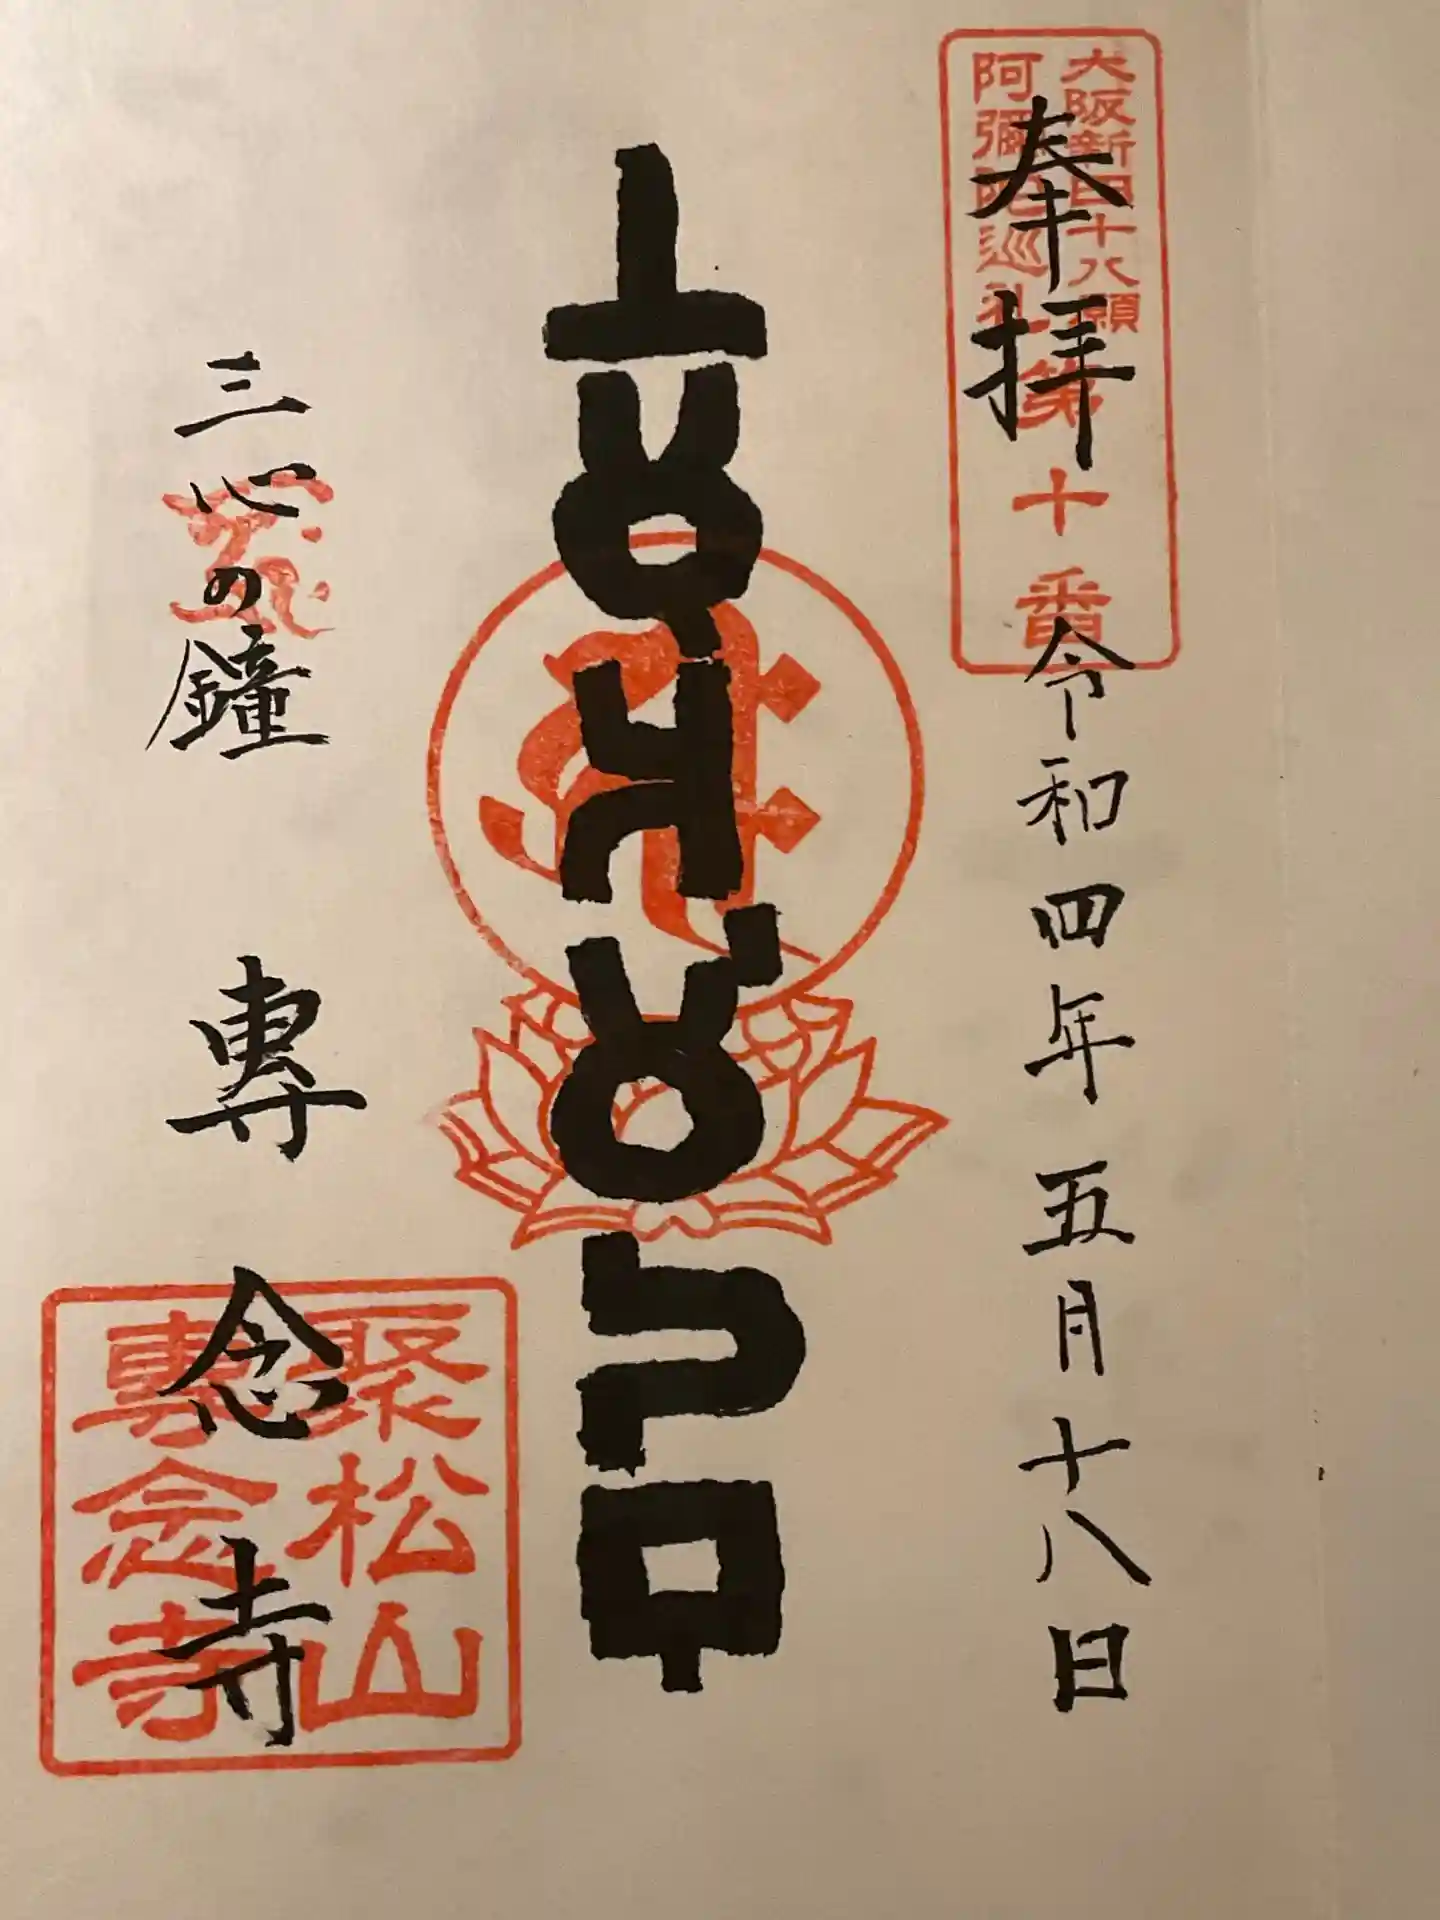 大阪新四十八願
阿彌陀巡礼
第十番
奉拝
令和四年五月十八日
三心の鐘
專念寺
聚松山
專念寺